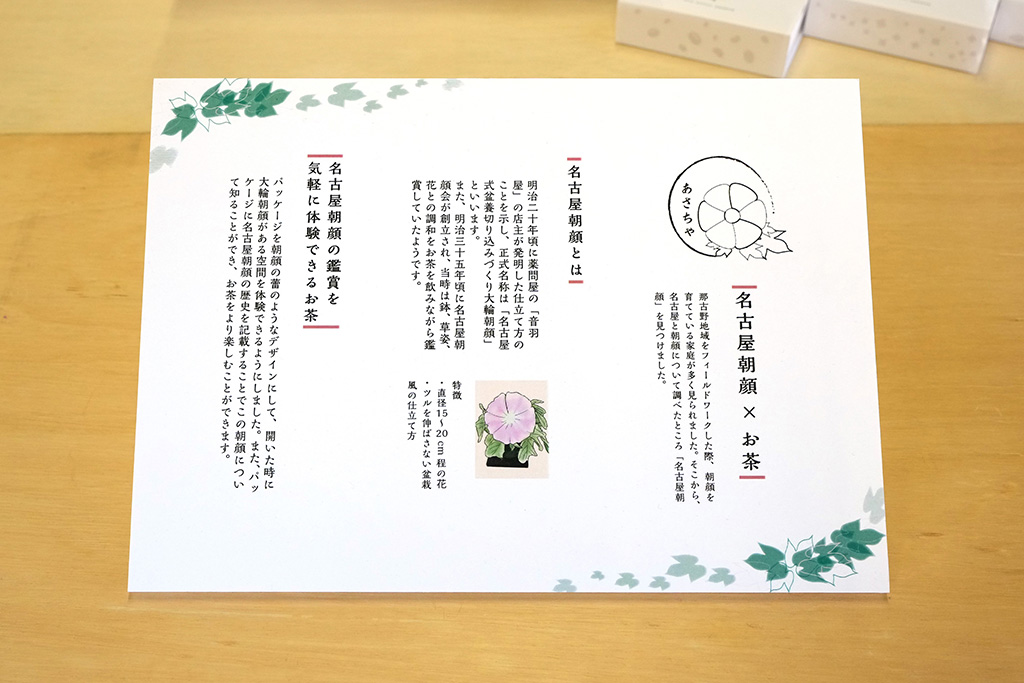 あさちや
名古屋朝顔 × お茶
那古野地域をフィールドワークした際、朝顔を
育てている家庭が多く見られました。そこから、
名古屋と朝顔について調べたところ「名古屋朝
顔」を見つけました。
名古屋朝顔とは
明治二十年頃に薬問屋の「音羽
屋」の店主が発明した仕立て方の
ことを示し、正式名称は「名古屋
式盆養切り込みづくり大輪朝顔」
といいます。
また、明治三十五年頃に名古屋朝
顔会が創立され、当時は鉢、草姿、
花との調和をお茶を飲みながら鑑
賞していたようです。
特徴
・直径15〜20cm程の花
・ツルを伸ばさない盆栽
風の仕立て方
名古屋朝顔の鑑賞を
気軽に体験できるお茶
パッケージを朝顔の蕾のようなデザインにして、開いた時に
大輪朝顔がある空間を体験できるようにしました。また、パッ
ケージに名古屋朝顔の歴史を記載することでこの朝顔につい
て知ることができ、お茶をより楽しむことができます。